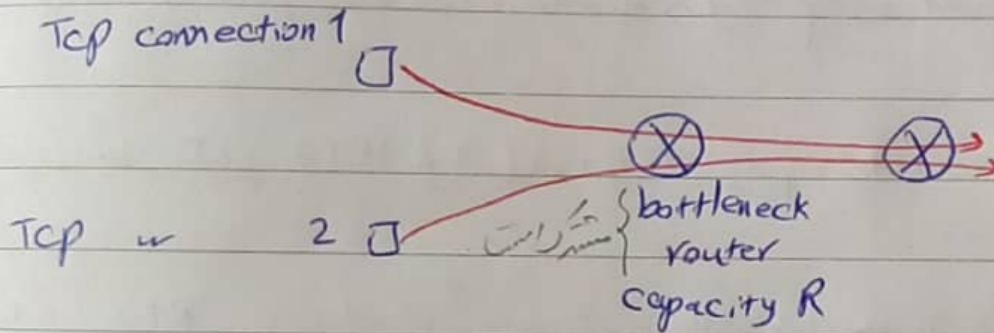 Tcp connection 1
Tcp 〃 2
مشترک است
bottleneck
router
capacity R